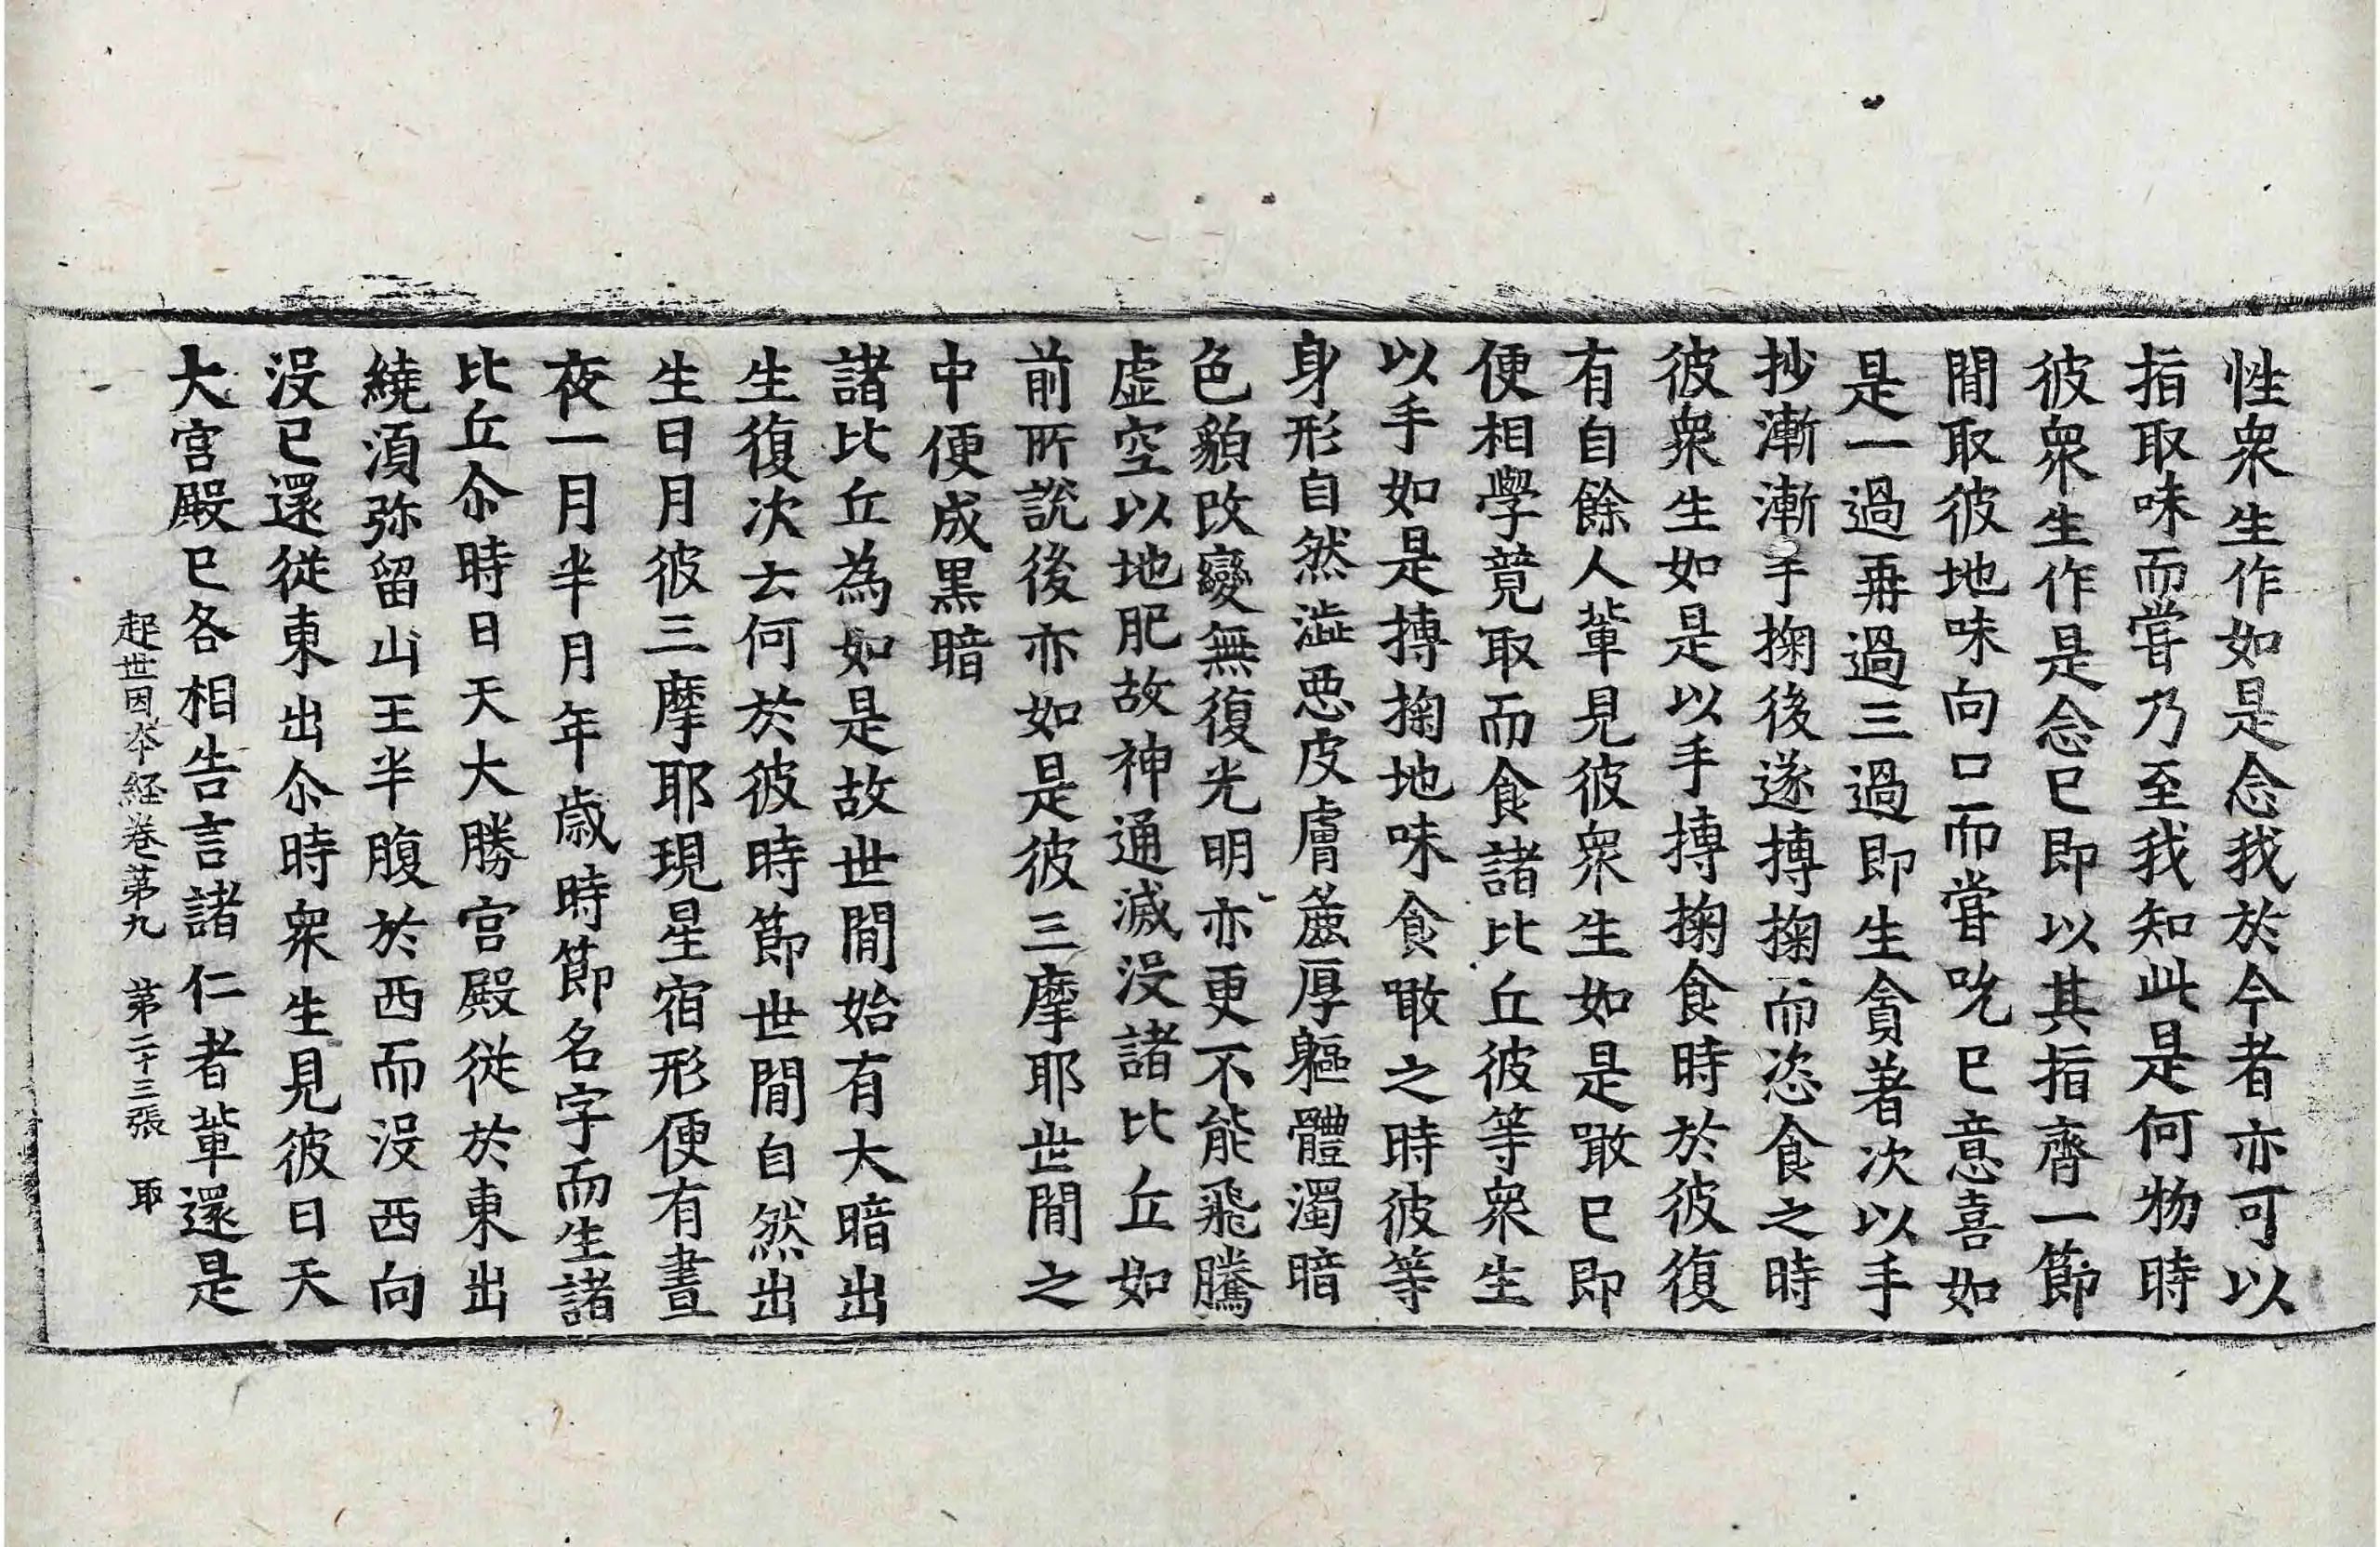 性衆生作如是念我於今者亦可以
指取味而甞乃至我知此是何物時
彼衆生作是念已即以其指齊一節
閒取彼地味向口而甞吮已意喜如
是一過再過三過即生貪著次以手
抄漸漸手掬後遂摶掬而恣食之時
彼衆生如是以手摶掬食時於彼復
有自餘人輩見彼衆生如是噉已即
便相學競取而食諸比丘彼等衆生
以手如是摶掬地味食噉之時彼等
身形自然澁惡皮膚麁厚軀體濁暗
色貌改變無復光明亦更不能飛騰
虛空以地肥故神通滅没諸比丘如
前所說後亦如是彼三摩耶世閒之
中便成黒暗
諸比丘為如是故世閒始有大暗出
生復次云何於彼時節世閒自然出
生日月彼三摩耶現星宿形便有晝
夜一月半月年歲時節名字而生諸
比丘尒時日天大勝宫殿従於東出
繞須弥留山王半腹於西而没西向
没已還従東出尒時衆生見彼日天
大宫殿已各相告言諸仁者輩還是
起世因夲経卷第九　第二十三張　取